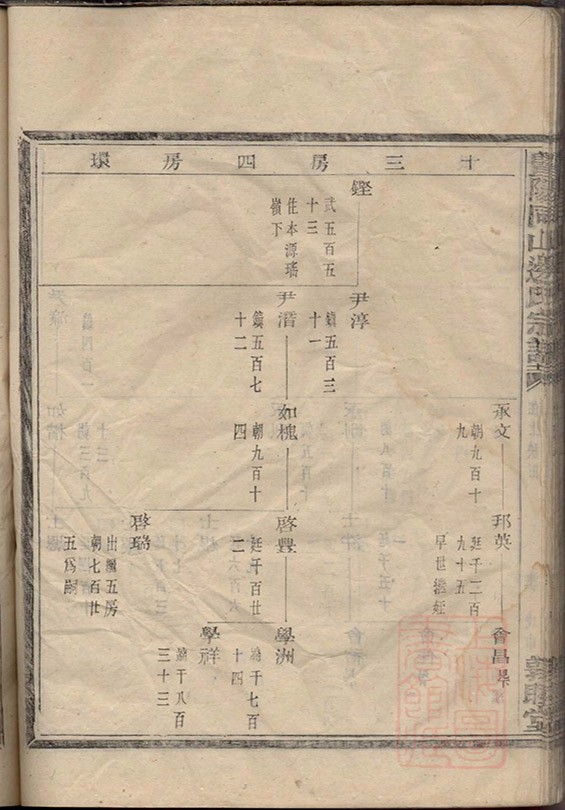 暨陽同山邊氏宗譜
敦睦堂
十三房四房環
鏗
武五百五
十三
住本源瑤
嶺下
尹淳
鎮五百三
十一
尹潛
鎮五百七
十二
承文
朝九百十
九
如槐
朝九百十
四
邦英
廷千二百
九十五
早世
啓豐
廷千百廿
二
啓瑞
出繼五房
朝七百廿
五爲嗣
會昌
學洲
瀚千七百
十四
學祥
瀚千八百
三十三